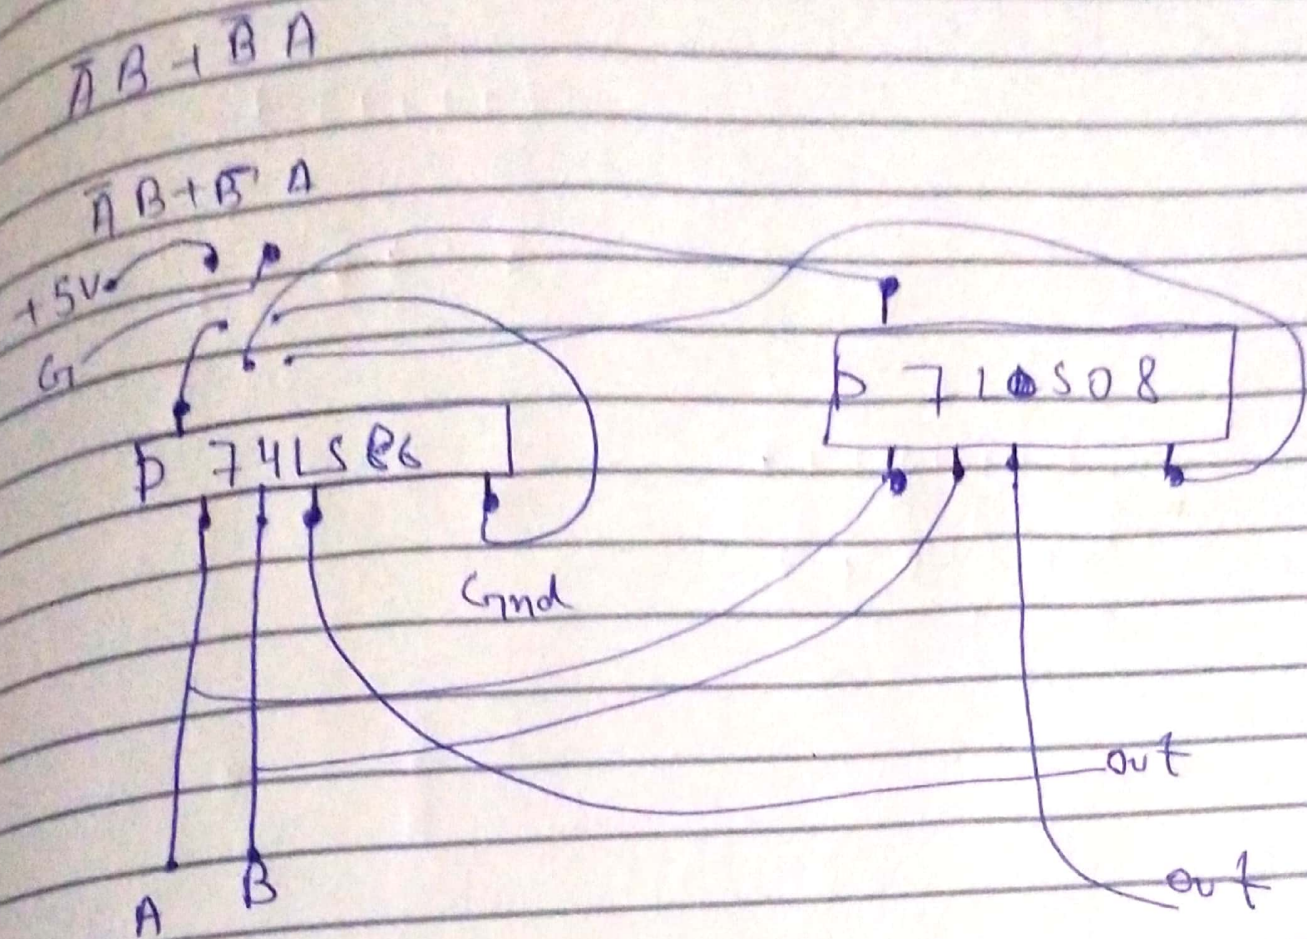 A̅ B + B̅ A
A̅ B + B̅ A
+5V
G
74LS86
71LS08
Gnd
out
out
A B